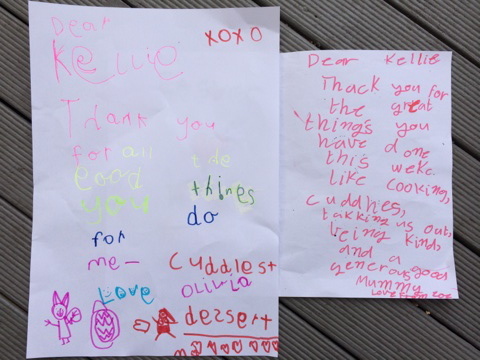 Dear
Kellie
xoxo
Thank you
for all the
good things
you do
for
me- cuddles +
Love Olivia
dessert
Dear Kellie
Thack you for
the great
things you
have done
this weke.
like cooking,
cuddles,
takking us out,
being kind,
and a
generous good
Mummy
Love from